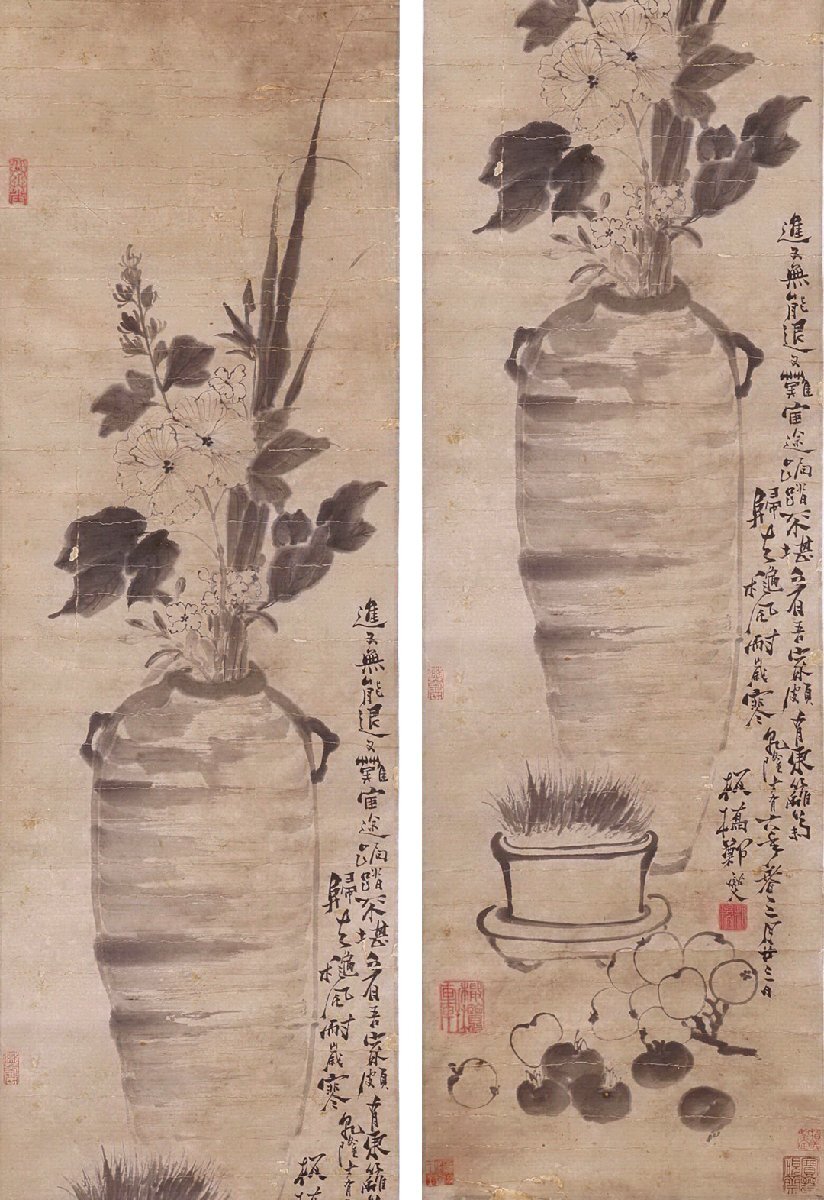 進又無能退又難宦途跼蹐不堪看吾家頗有東籬
歸去穐風耐歲寒乾隆十有
板橋
進又無能退又難宦途跼蹐不堪看吾家頗有東籬菊
歸去穐風耐歲寒乾隆十有六年春三月廿三日
板橋鄭燮